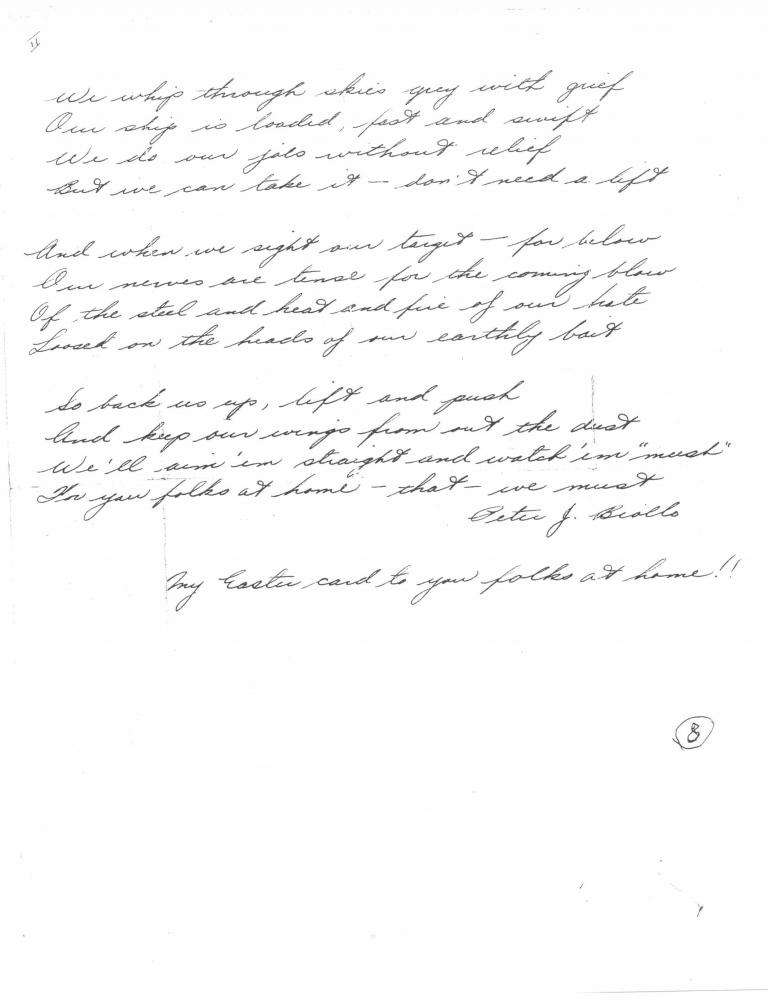 II
We whip through skies grey with grief
Our ship is loaded, fast and swift
We do our jobs without relief
But we can take it — don't need a lift
And when we sight our target — far below
Our nerves are tense for the coming blow
Of the steel and heat and fire of our hate
Loosed on the heads of our earthly bait
So back us up, lift and push
And keep our wings from out the dust
We'll aim 'em straight and watch 'em "mush"
For you folks at home — that — we must
Peter J. Biollo
My Easter card to you folks at home!!
8